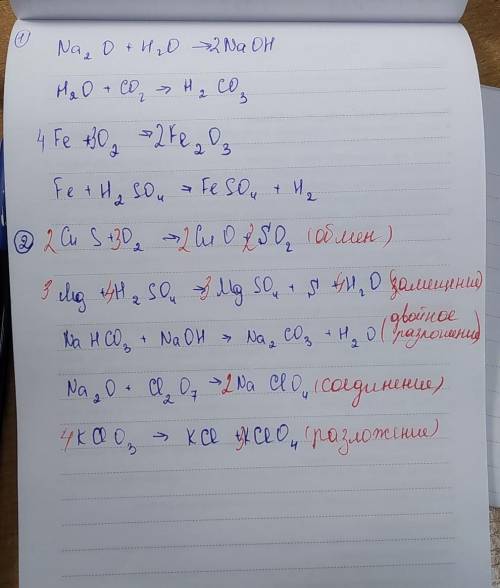 ① Na₂O + H₂O → 2NaOH
H₂O + CO₂ → H₂CO₃
4Fe + 3O₂ → 2Fe₂O₃
Fe + H₂SO₄ → FeSO₄ + H₂
② 2CuS + 3O₂ → 2CuO + 2SO₂ (обмен)
3Mg + 4H₂SO₄ → 3MgSO₄ + S + 4H₂O (замещение)
NaHCO₃ + NaOH → Na₂CO₃ + H₂O (двойное разложение)
Na₂O + Cl₂O₇ → 2NaClO₄ (соединение)
4KClO₃ → KCl + 3KClO₄ (разложение)